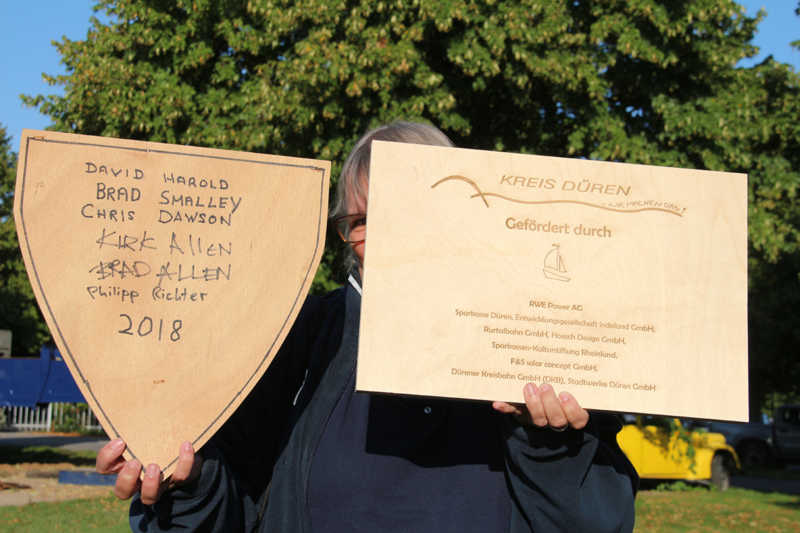 DAVID HAROLD
BRAD SMALLEY
CHRIS DAWSON
KIRK Allen
BRAD ALLEN
Philipp Richter
2018
KREIS DÜREN
WIR MACHEN DAS!
Gefördert durch
RWE Power AG
Sparkasse Düren, Entwicklungsgesellschaft indeland GmbH,
Rurtalbahn GmbH, Hoesch Design GmbH,
Sparkassen-Kulturstiftung Rheinland,
F&S solar concept GmbH,
Dürener Kreisbahn GmbH (DKB), Stadtwerke Düren GmbH